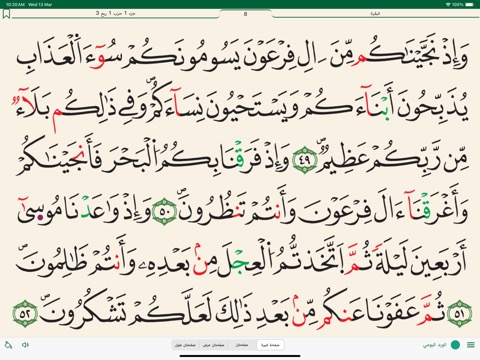 10:20 AM Wed 13 Mar
جزء 1 حزب 1 ربع 3
8
البقرة
100%
وَإِذْ نَجَّيْنَٰكُم مِّنْ ءَالِ فِرْعَوْنَ يَسُومُونَكُمْ سُوٓءَ ٱلْعَذَابِ
يُذَبِّحُونَ أَبْنَآءَكُمْ وَيَسْتَحْيُونَ نِسَآءَكُمْ ۚ وَفِى ذَٰلِكُم بَلَآءٌ
مِّن رَّبِّكُمْ عَظِيمٌ ٤٩ وَإِذْ فَرَقْنَا بِكُمُ ٱلْبَحْرَ فَأَنجَيْنَٰكُمْ
وَأَغْرَقْنَآ ءَالَ فِرْعَوْنَ وَأَنتُمْ تَنظُرُونَ ٥٠ وَإِذْ وَٰعَدْنَا مُوسَىٰٓ
أَرْبَعِينَ لَيْلَةً ثُمَّ ٱتَّخَذتُّمُ ٱلْعِجْلَ مِنۢ بَعْدِهِۦ وَأَنتُمْ ظَٰلِمُونَ
٥١ ثُمَّ عَفَوْنَا عَنكُم مِّنۢ بَعْدِ ذَٰلِكَ لَعَلَّكُمْ تَشْكُرُونَ ٥٢
صفحتان طول
صفحتان عرض
صفحتان
صفحة كبيرة
الورد اليومي